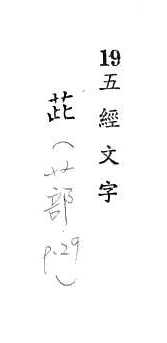 19五經文字
茈(艸部 p.29)